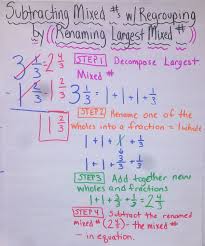 Subtracting Mixed #s w/ Regrouping
by ((Renaming Largest Mixed #))
3 1/3 2 4/3
- 1 2/3
1 2/3
STEP 1 Decompose Largest
Mixed #
3 1/3 = 1 + 1 + 1 + 1/3
STEP 2 Rename one of the
wholes into a fraction = 1 whole
1 + 1 + 1 + 1/3
1 + 1 + 3/3 + 1/3
STEP 3 Add together new
wholes and fractions
1 + 1 + 3/3 + 1/3 = 2 4/3
STEP 4 Subtract the renamed
mixed # (2 4/3) - the mixed #
in equation.